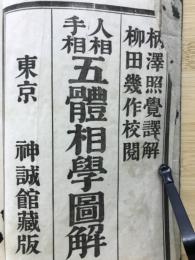 柄澤照覺譯解
柳田幾作校閲
人相
手相
五體相學圖解
東京 神誠館藏版